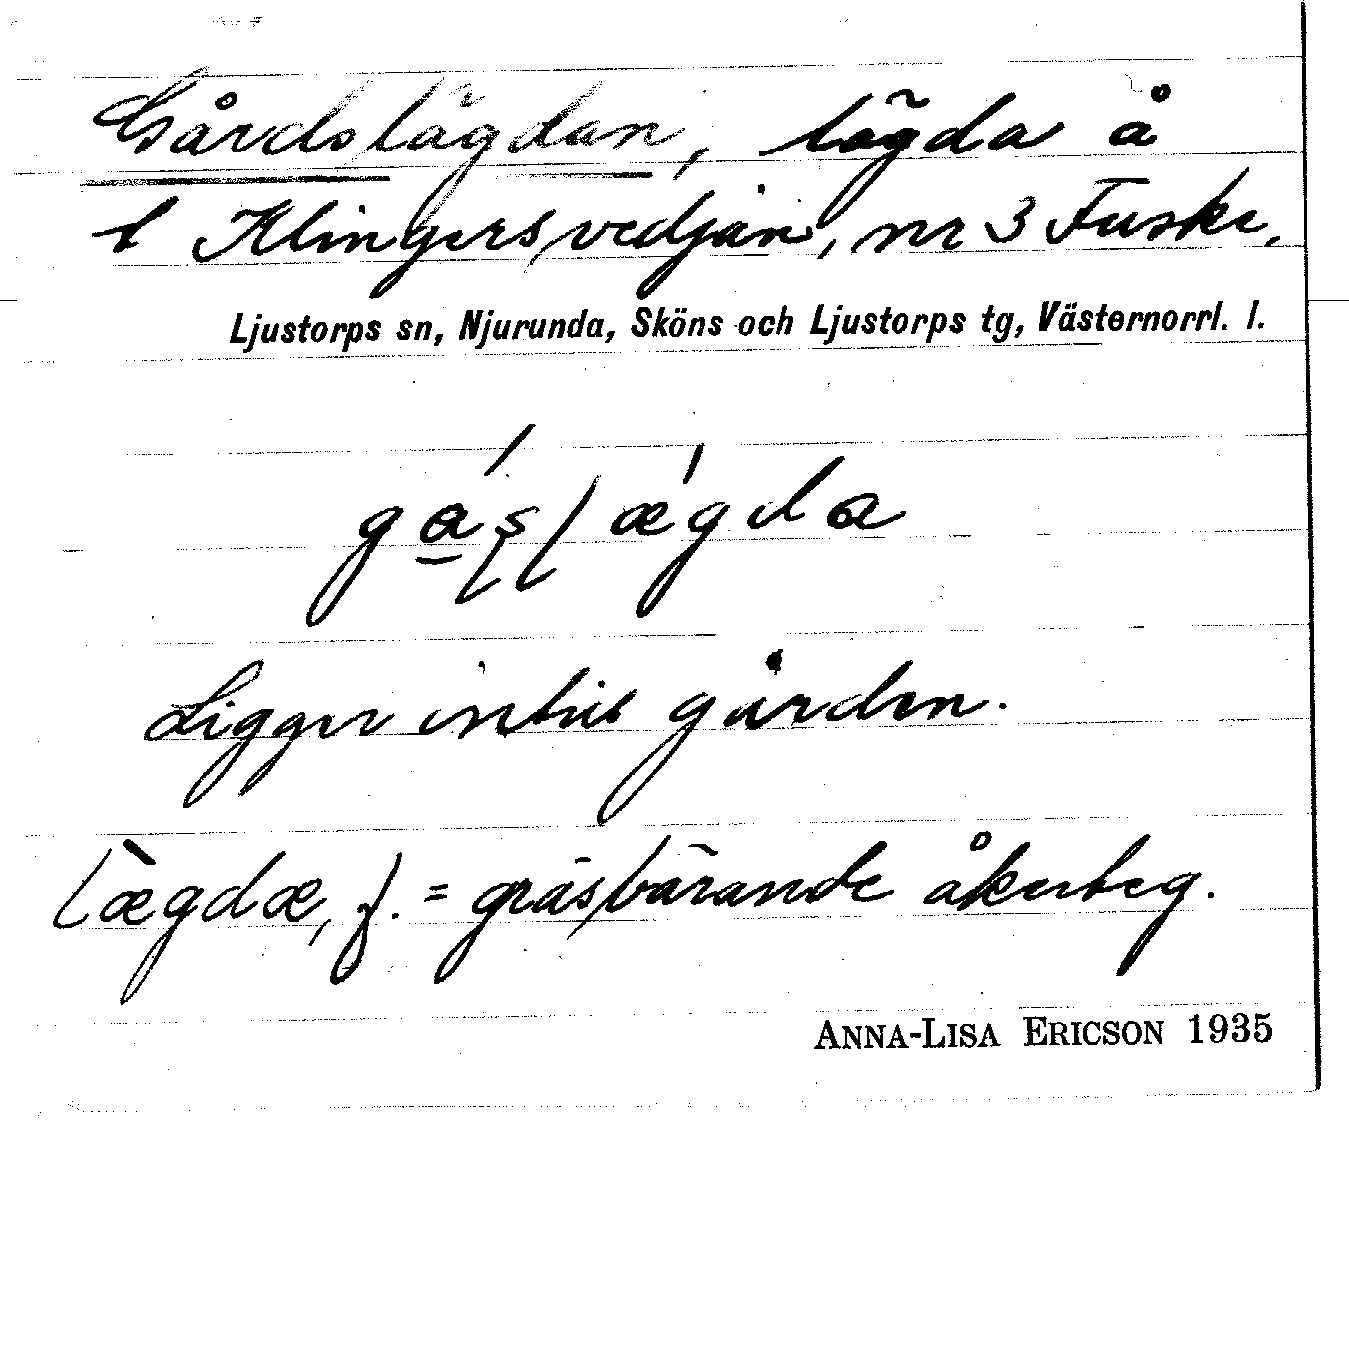 Gårdslägdan, lägda å
t Klingersvedjan, nr 3 Fuske,
Ljustorps sn, Njurunda, Sköns och Ljustorps tg, Västernorrl. l.
Ligger intill gården.
lægdæ, f. = gräsbärande åkerteg.
ANNA-LISA ERICSON 1935